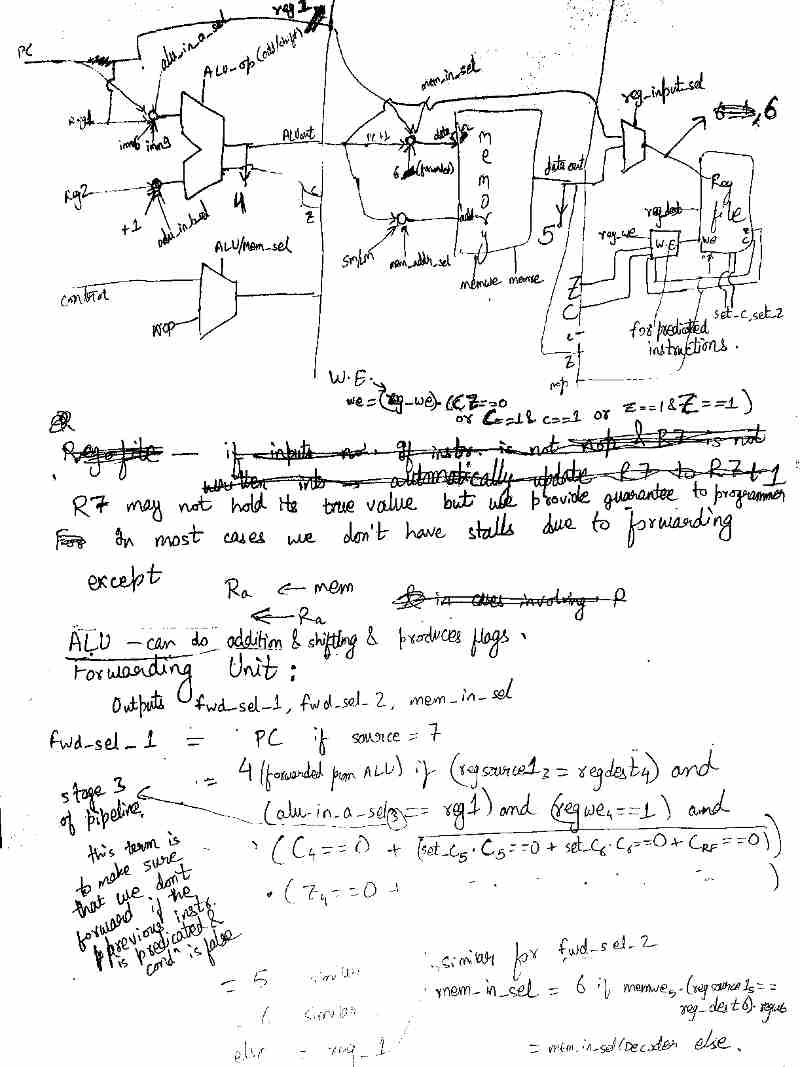 reg 1
PC
alu_in_a_sel
ALU_op (add/shift)
mem_in_sel
reg_input_sel
Reg1
imm6 imm9
ALUout
PC+1
data in
6 (forwarded)
Memory
data out
6
4
5
Reg2
+1
alu_in_b_sel
C
Z
ALU/Mem_sel
control
NOP
sm/lm
mem_addr_sel
addr
memwe memre
Reg file
reg_dest
reg_we
W.E
we
C
Z
Z
C
c
z
nop
set_c, set_z
for predicated
instructions.
W.E.
we = (reg_we).(CZ==0
or C==1 & c==1 or z==1 & Z==1)
Reg file — if inputs no. If instr. is not nop & R7 is not
written into — automatically update R7 to R7+1
R7 may not hold its true value but we provide guarantee to programmer
In most cases we don't have stalls due to forwarding
except
Ra ← mem
in cases involving R
← Ra
ALU — can do addition & shifting & produces flags.
Forwarding Unit:
Outputs fwd_sel_1, fwd_sel_2, mem_in_sel
fwd_sel_1 = PC if source = 7
= 4 (forwarded from ALU) if (regsource1₃ = regdest₄) and
(alu_in_a_sel₃ == reg1) and (regwe₄==1) and
stage 3
of pipeline.
. (C₄==0 + (set_C₅.C₅==0 + set_C₆.C₆==0 + C_RF==0))
. (Z₄==0 + )
this term is
to make sure
that we don't
forward if the
previous instr.
is predicated &
condⁿ is false
= 5 similar
similar
else = reg_1
similar for fwd_sel_2
mem_in_sel = 6 if memwe₅.(regsource1₅==
reg_dest6).regwe6
= mem_in_sel/Decoder else.